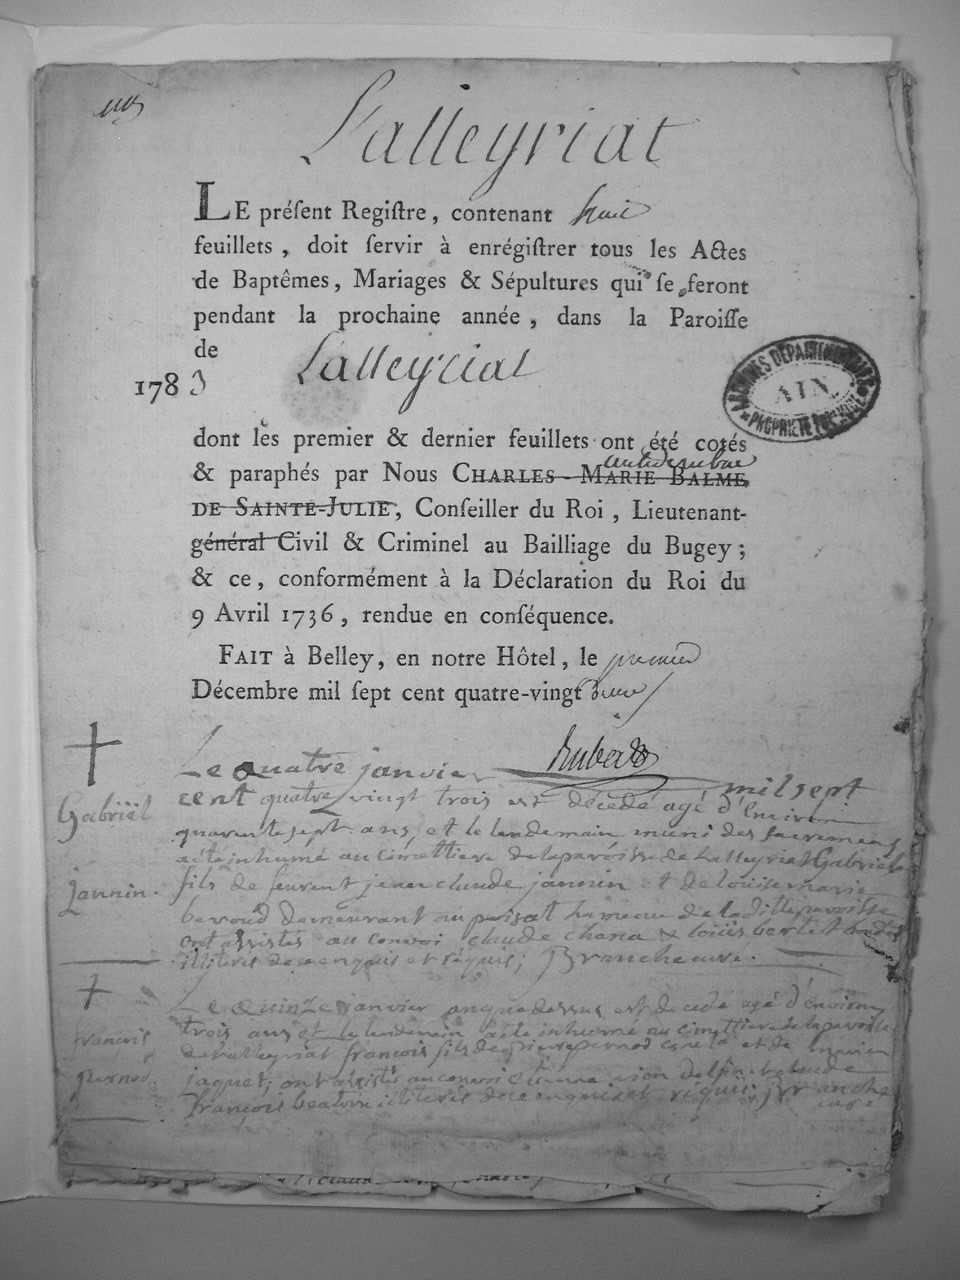 Lalleyriat
LE préſent Regiſtre, contenant huit
feuillets, doit ſervir à enrégiſtrer tous les Actes
de Baptêmes, Mariages & Sépultures qui ſe feront
pendant la prochaine année, dans la Paroiſſe
de Lalleyriat
1783
ARCHIVES DÉPARTEMENTALES
AIN
PROPRIÉTÉ PUBLIQUE
dont les premier & dernier feuillets ont été cotés
& paraphés par Nous CHARLES-MARIE BALME
DE SAINTE-JULIE, Conſeiller du Roi, Lieutenant-
général Civil & Criminel au Bailliage du Bugey;
& ce, conformément à la Déclaration du Roi du
9 Avril 1736, rendue en conſéquence.
FAIT à Belley, en notre Hôtel, le premier
Décembre mil ſept cent quatre-vingt deux
Le quatre janvier mil sept
Gabriel
cent quatre vingt trois est décédé agé d'environ
quarante sept ans, et le lendemain muni des sacremens
a été inhumé au cimettiere de la paroisse de Lalleyriat Gabriel
jannin
fils de feu jean claude jannin et de louise marie
demeurant au hameau de la ditte paroisse
ont assistés au convoi claude chana & loüis
illiteris de ce enquis et réquis; Brancheauvi.
Le Quinze janvier an que dessus est décédé agé d'environ
françois
trois ans et le lendemain a été inhumé au cimettiere de la paroisse
de Lalleyriat françois fils de pierre pernod et de
pernod
jaquet; ont assistés au convoi claude
françois illiteris de ce enquis et réquis;